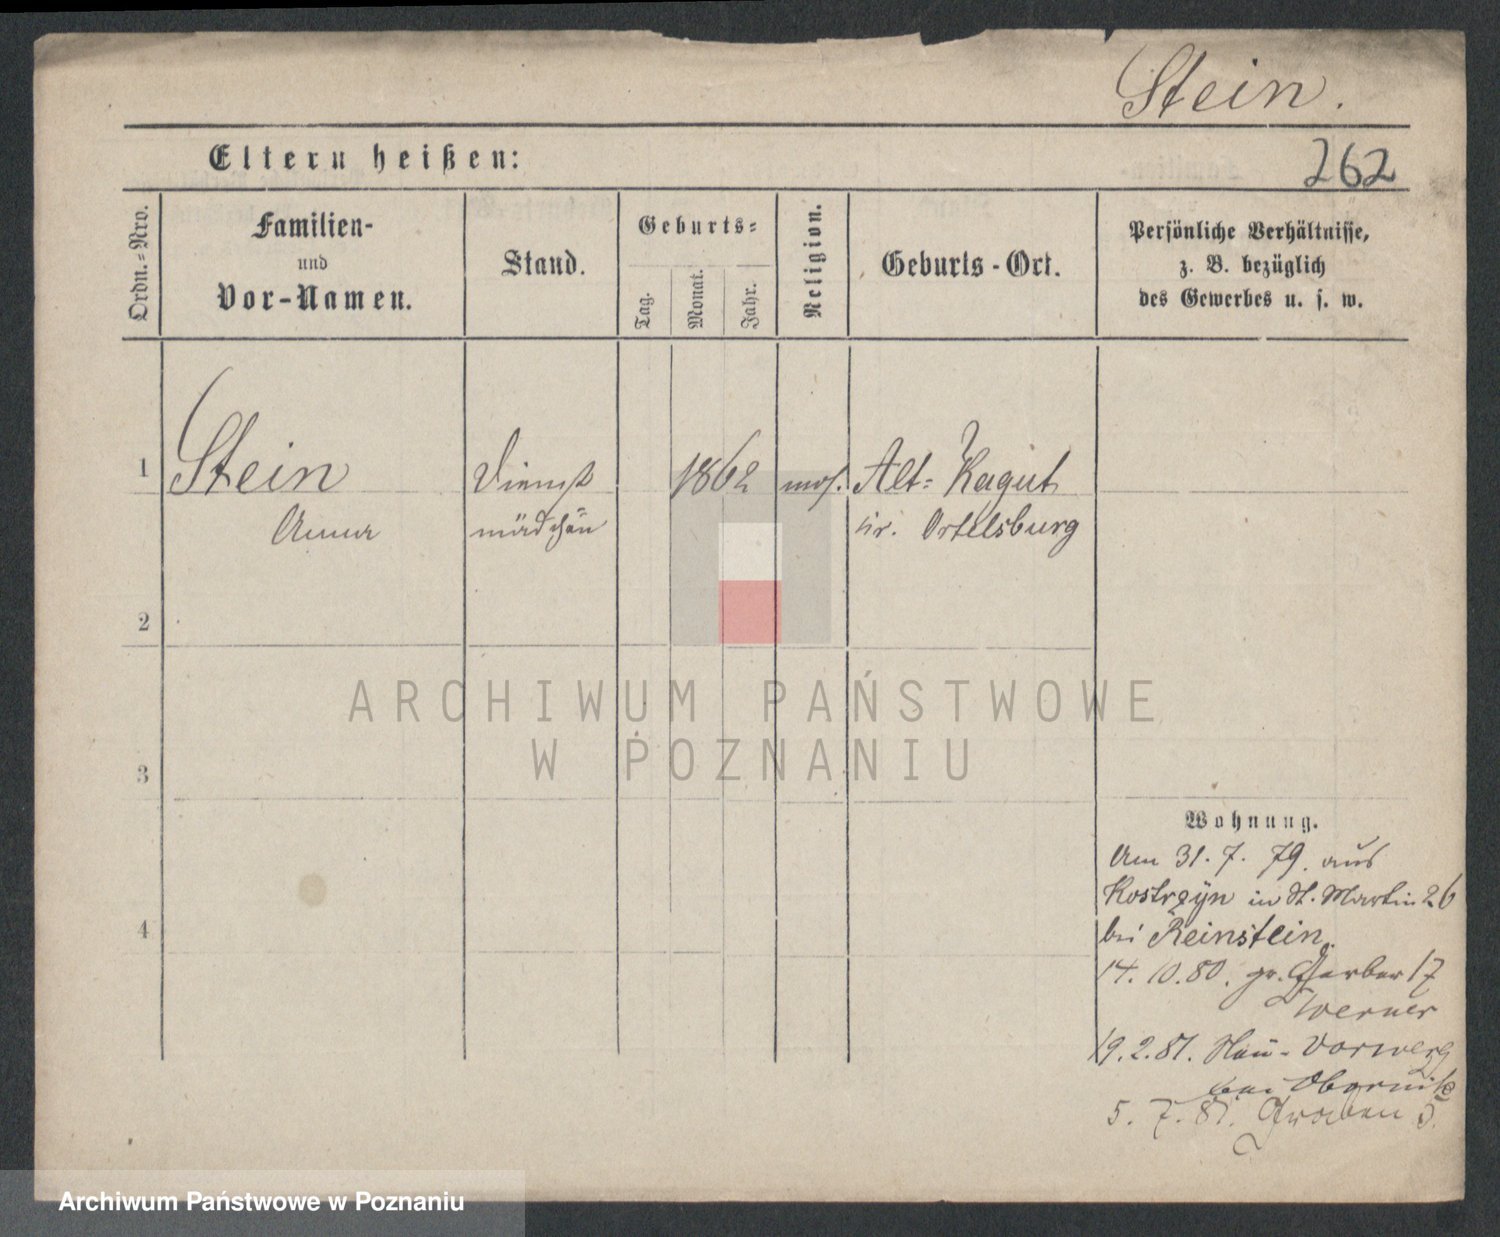 Stein.
Eltern heißen:
262
Ordn.=Nro.
Familien-
und
Vor-Namen.
Stand.
Geburts=
Tag.
Monat.
Jahr.
Religion.
Geburts-Ort.
Persönliche Verhältnisse,
z. B. bezüglich
des Gewerbes u. s. w.
1
Stein
Anna
Dienst
mädchen
1862
mos.
Alt=
Kr. Ortelsburg
2
3
4
Wohnung.
Am 31. 7. 79. aus
Kostrzyn in St. Martin 26
bei Reinstein.
14. 10. 80. gr. Gerber 17
Werner
19. 2. 81. Neu-Vorwerg
bei Obornik
5. 7. 81. Graben 5.
ARCHIWUM PAŃSTWOWE
W POZNANIU
Archiwum Państwowe w Poznaniu